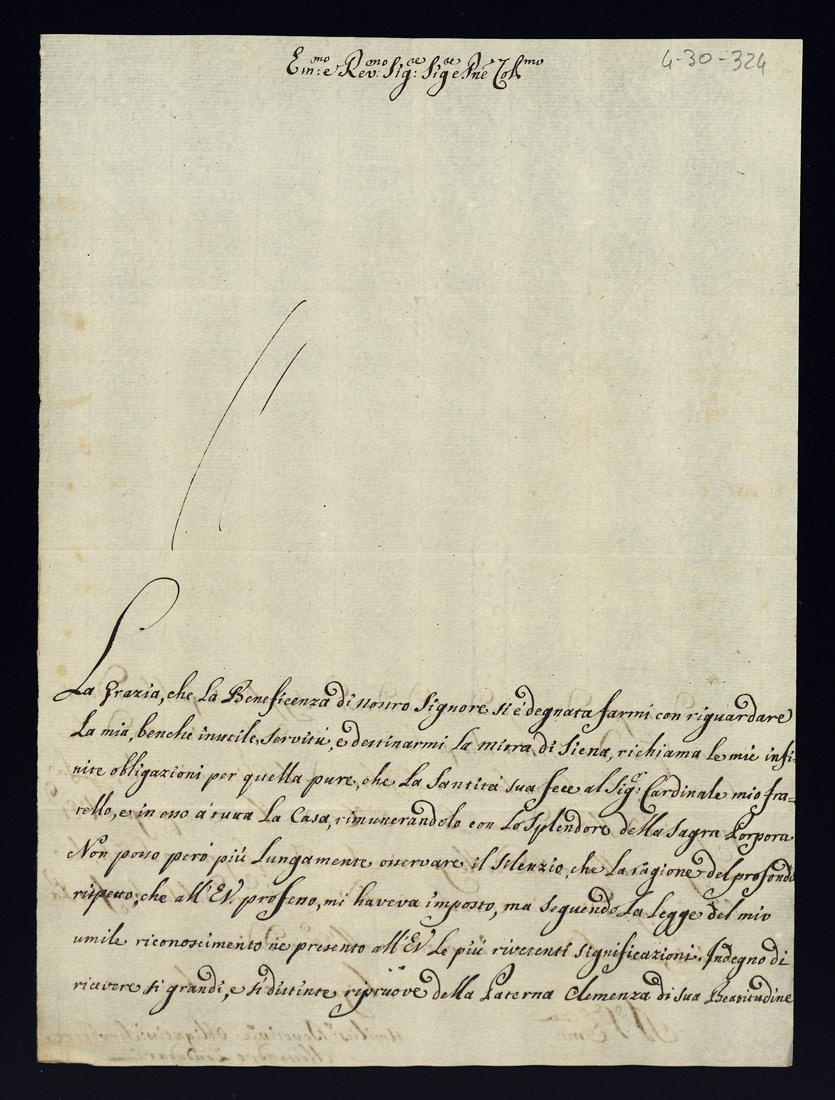 Em:mo e Rev:mo Sig:re Sig:re e Pne Col:mo
4-30-324
La Grazia, che La Beneficenza di nostro Signore si é degnata farmi con riguardare
La mia, benche inutile, servitù, e destinarmi La mitra di Siena, richiama le mie infi-
nite obligazioni per quella pure, che La Santitá sua fece al Sig:r Cardinale mio fra-
tello, e in esso á tutta La Casa, rimunerandolo con Lo Splendore della Sagra Porpora
Non posso peró piú Lungamente osservare il silenzio, che La ragione del profondo
rispetto, che all'EV. professo, mi haveva imposto, ma seguendo La Legge del mio
umile riconoscimento ne presento all'EV. Le piú riverenti significazioni. Indegno di
ricevere si grandi, e si distinte ripruove della Paterna Clemenza di sua Beatitudine